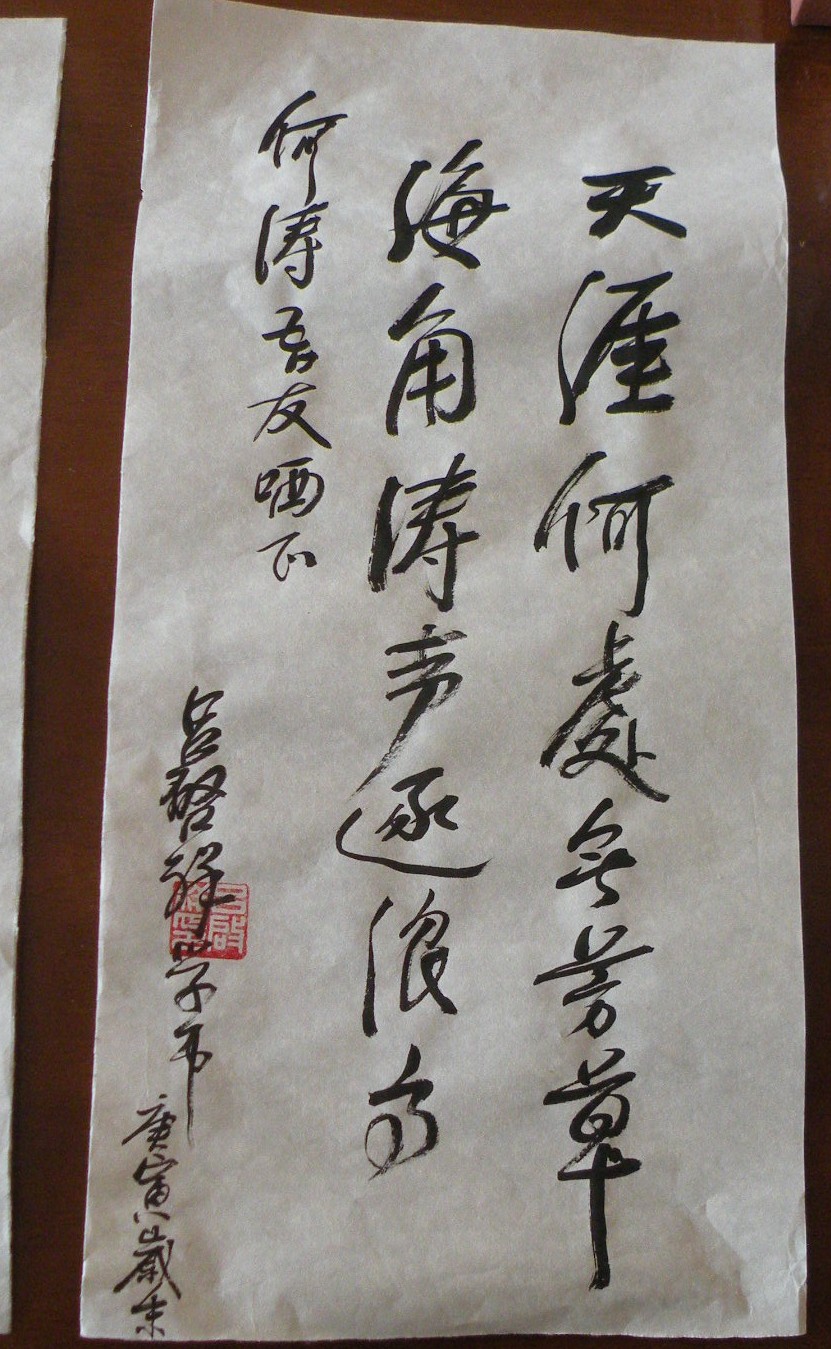 天涯何處无芳草
海角涛声逐浪高
何涛吾友哂正
吕啓祥学书
庚寅歲末